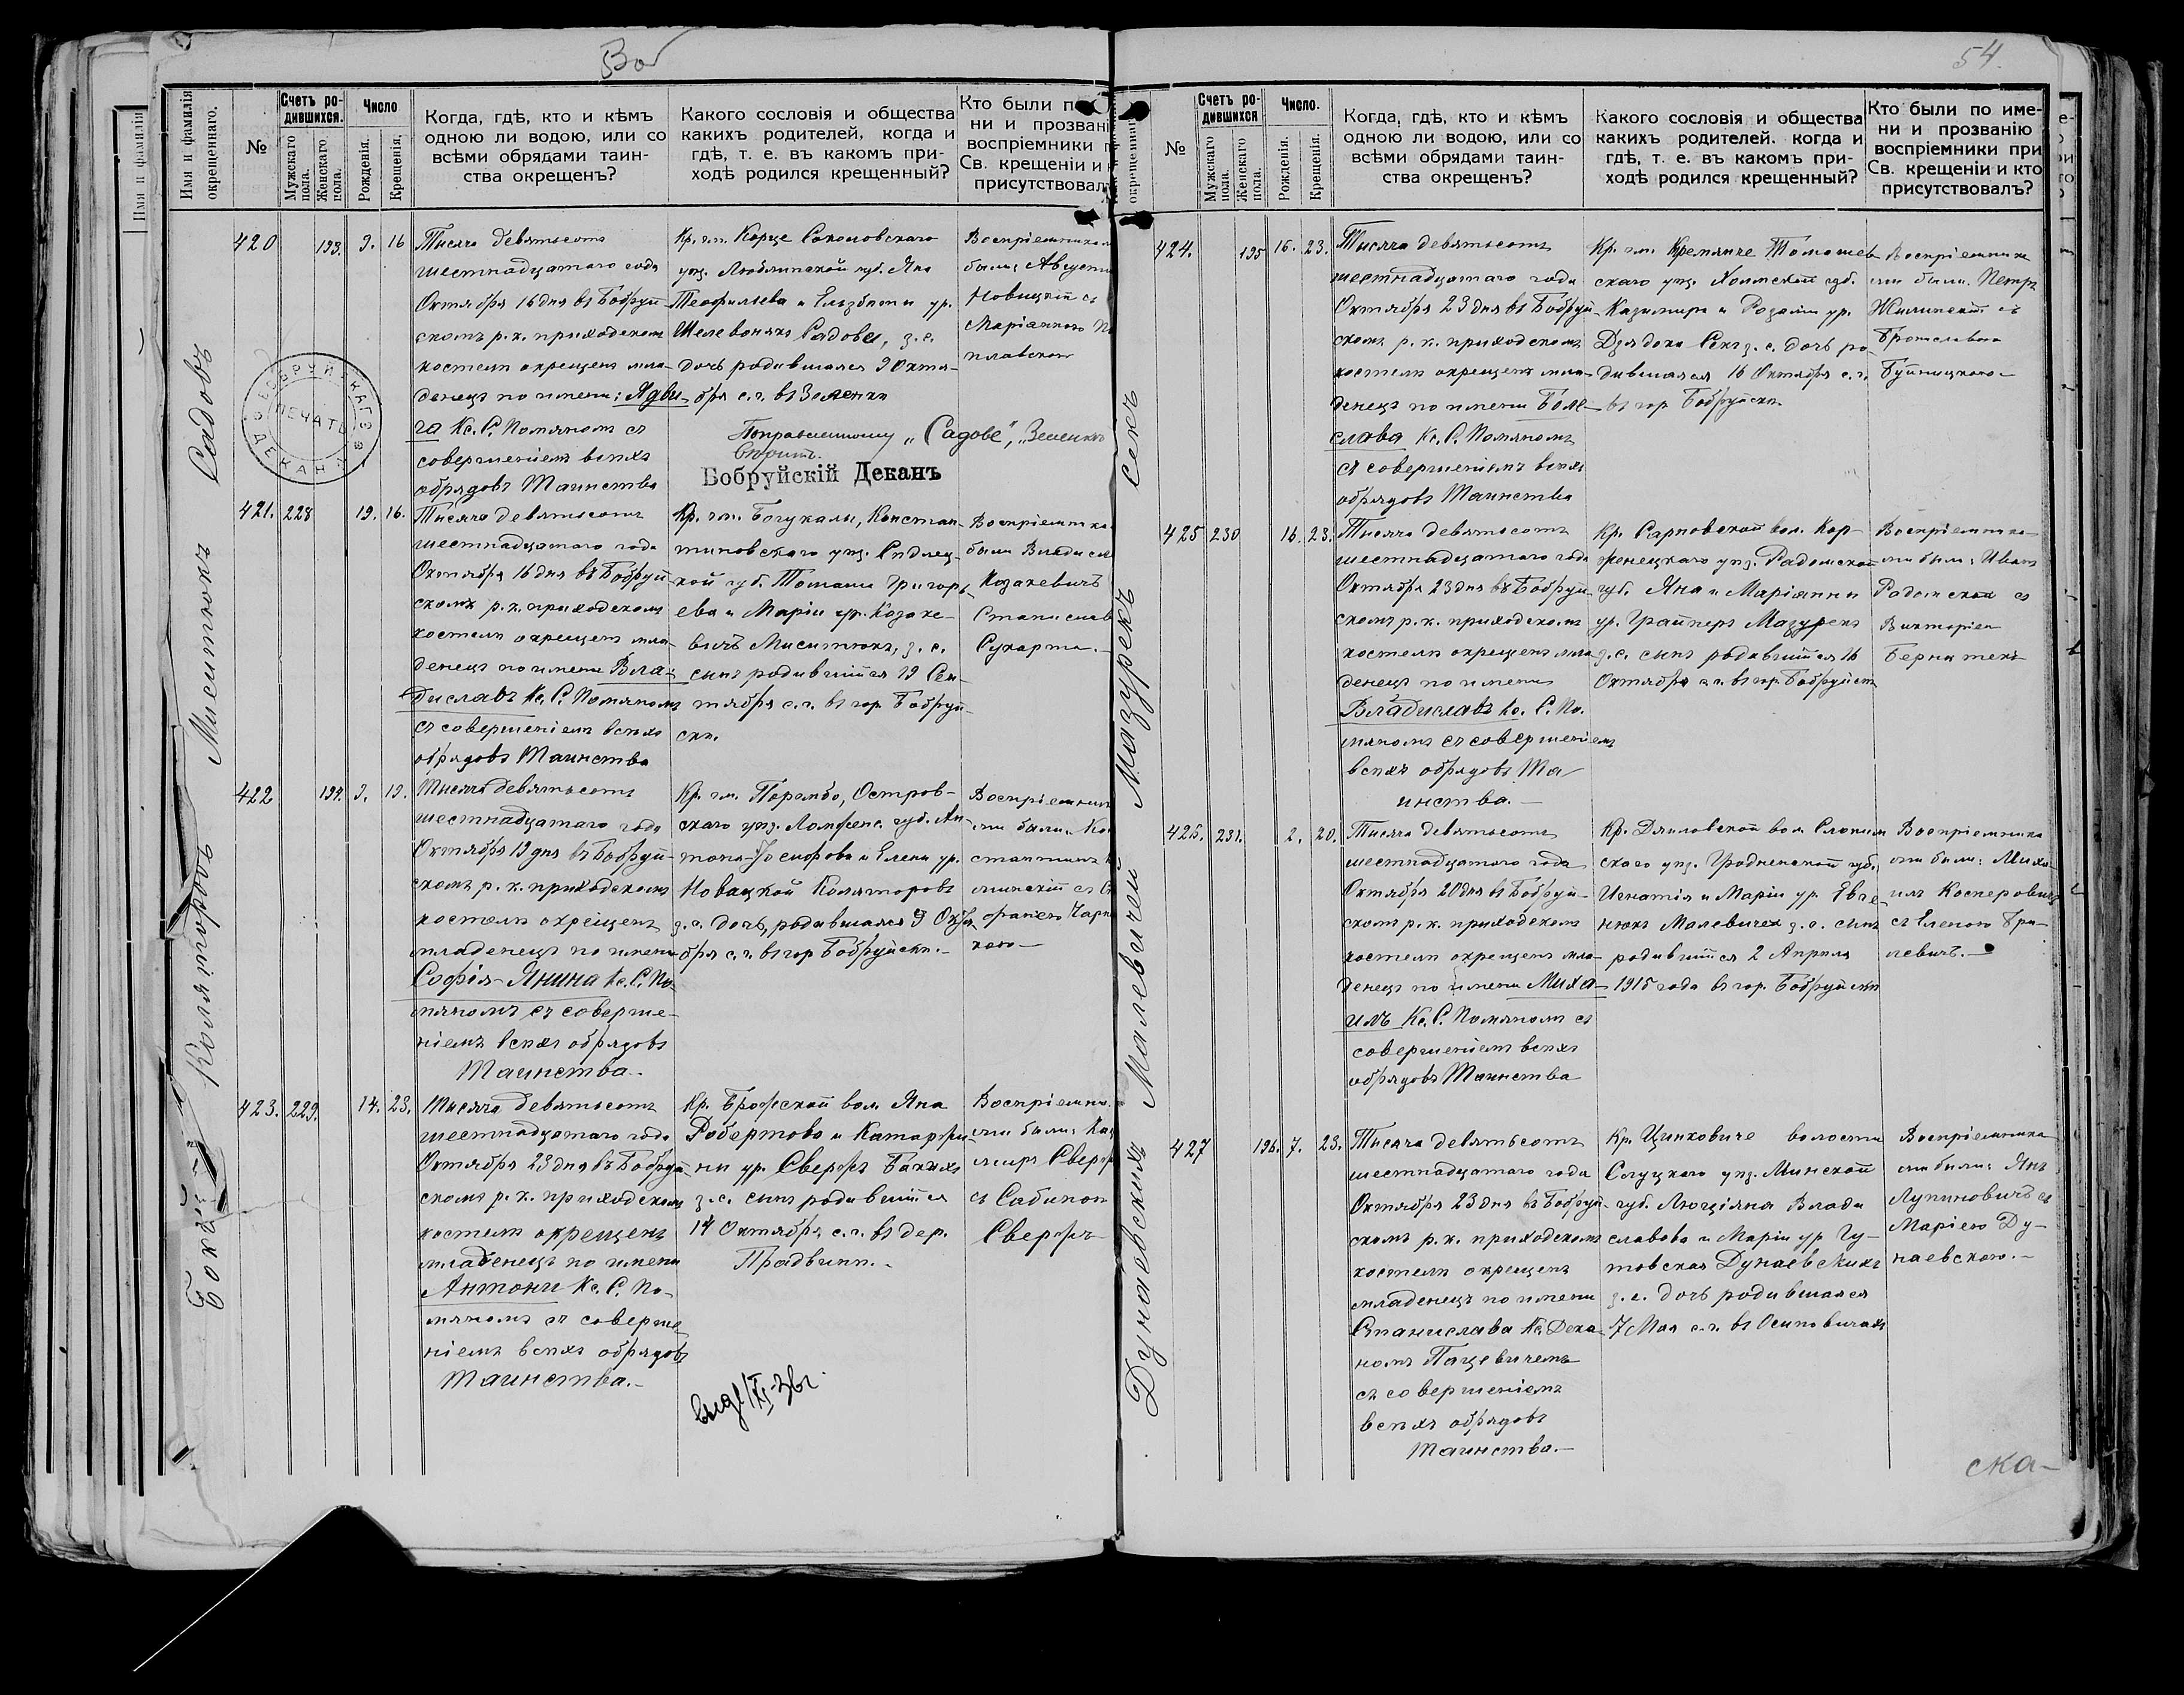 Имя и фамилія
окрещеннаго.
№
Счетъ ро-
дившихся.
Мужскаго
пола.
Женскаго
пола.
Число
Рожденія.
Крещенія.
Когда, гдѣ, кто и кѣмъ
одною ли водою, или со
всѣми обрядами таин-
ства окрещенъ?
Какого сословія и общества
какихъ родителей, когда и
гдѣ, т. е. въ какомъ при-
ходѣ родился крещенный?
Кто были п
ни и прозвані
воспріемники п
Св. крещеніи и
присутствовал
Садовъ
420
193.
9.
16
Тысяча девятьсотъ
шестнадцатаго года
Октября 16 дня въ Бобруй-
скомъ р. к. приходскомъ
костелѣ окрещенъ мла-
денецъ по имени: Ядви-
га Кс. С. Помяномъ съ
совершеніемъ всѣхъ
обрядовъ Таинства
Кр. гм. Корце Соколовскаго
уѣз. Люблинской губ. Яна
Теофильева и Ельзбеты ур.
Шелевонякъ Садовы, з. с.
дочь родившаяся 9 Октя-
бря с. г. въ Зеленки
Поправленному „Садове", „Зеленки
вѣрить.
Бобруйскій Деканъ
Воспріемникам
были Августи
Новицкій съ
Маріанною По
плавскою
ПЕЧАТЬ
Мисигнюкъ
421.
228
19.
16.
Тысяча девятьсотъ
шестнадцатаго года
Октября 16 дня въ Бобруй-
скомъ р. к. приходскомъ
костелѣ окрещенъ мла-
денецъ по имени Вла-
диславъ Кс. С. Помяномъ
съ совершеніемъ всѣхъ
обрядовъ Таинства
Кр. гм. Богукалы, Констан-
тиновскаго уѣз. Сѣдлец-
кой губ. Томаша Григорь-
ева и Маріи ур. Козаке-
вичъ Миситюкъ, з. с.
сынъ родившійся 19 Сен-
тября с. г. въ гор. Бобруй-
скѣ.
Воспріемника
были Владисла
Козакевичъ
Станислав
Сухарта.-
422
194.
9.
19.
Тысяча девятьсотъ
шестнадцатаго года
Октября 19 дня въ Бобруй-
скомъ р. к. приходскомъ
костелѣ окрещенъ
младенецъ по имени
Софія-Янина Кс. С. По-
мяномъ съ соверше-
ніемъ всѣхъ обрядовъ
Таинства.-
Кр. гм. Порембо, Остров-
скаго уѣз. Ломжинс. губ. Ан-
тона-Іосифова и Елены ур.
Новацкой Коляторовъ
з. с. дочь, родившаяся 9 Октя-
бря с. г. въ гор Бобруйскѣ.-
Воспріемник
ми были: Ко
стантинъ
минскій съ С
фаніею Чарн
кою-
423.
229.
14.
23.
Тысяча девятьсотъ
шестнадцатаго года
Октября 23 дня въ Бобруй-
скомъ р. к. приходскомъ
костелѣ окрещенъ
младенецъ по имени
Антони Кс. С. По-
мяномъ съ соверше-
ніемъ всѣхъ обрядовъ
Таинства.-
Кр. Брожской вол. Яна
Робертова и Катаржи-
ны ур. Свержъ Бокихъ
з. с. сынъ родившійся
14 Октября с. г. въ дер.
Прадвинѣ.-
Воспріемни
ми были: Каз
миръ Сверж
съ Сабиною
Свержъ
54.
окрещенна
№
Счетъ ро-
дившихся
Мужскаго
пола.
Женскаго
пола.
Число.
Рожденія.
Крещенія.
Когда, гдѣ, кто и кѣмъ
одною ли водою, или со
всѣми обрядами таин-
ства окрещенъ?
Какого сословія и общества
какихъ родителей. когда и
гдѣ, т. е. въ какомъ при-
ходѣ родился крещенный?
Кто были по име-
ни и прозванію
воспріемники при
Св. крещеніи и кто
присутствовалъ?
Секъ
424.
195
16.
23.
Тысяча девятьсотъ
шестнадцатаго года
Октября 23 дня въ Бобруй-
скомъ р. к. приходскомъ
костелѣ окрещенъ мла-
денецъ по имени Боле-
слава Кс. С. Помяномъ
съ совершеніемъ всѣхъ
обрядовъ Таинства
Кр. гм. Кремянче Томашев-
скаго уѣз. Холмской губ.
Казимира и Розаліи ур.
Дзядока Секъ з. с. дочь ро-
дившаяся 16 Октября с. г.
въ гор Бобруйскѣ.
Воспріемника
ми были. Петръ
Жилинскій съ
Брониславою
Буйницкою-
Мазурекъ
425
230
16.
23.
Тысяча девятьсотъ
шестнадцатаго года
Октября 23 дня въ Бобруй-
скомъ р. к. приходскомъ
костелѣ окрещенъ мла-
денецъ по имени
Владиславъ Кс. С. По-
мяномъ съ совершеніемъ
всѣхъ обрядовъ Та-
инства.-
Кр. Сарновской вол. Кор-
женецкаго уѣз. Радомской
губ. Яна и Маріанны
ур. Грайперъ Мазурекъ
з. с. сынъ родившійся 16
Октября с. г. въ гор. Бобруйскѣ
Воспріемника-
ми были: Иванъ
Радомскій съ
Викторіею
Бернатекъ
Малевичей
426.
231.
2.
20.
Тысяча девятьсотъ
шестнадцатаго года
Октября 20 дня въ Бобруй-
скомъ р. к. приходскомъ
костелѣ окрещенъ мла-
денецъ по имени Миха-
илъ Кс. С. Помяномъ съ
совершеніемъ всѣхъ
обрядовъ Таинства
Кр. Дятловской вол. Слоним-
скаго уѣз. Гродненской губ.
Игнатія и Маріи ур. Евге-
нюкъ Малевичей з. с. сынъ
родившійся 2 Апрѣля
1915 года въ гор. Бобруйскѣ
Воспріемника
ми были: Миха-
илъ Косперовичъ
съ Еленою Гри-
левичъ.-
Дунаевскихъ
427
196.
7.
23.
Тысяча девятьсотъ
шестнадцатаго года
Октября 23 дня въ Бобруй-
скомъ р. к. приходскомъ
костелѣ окрещенъ
младенецъ по имени
Станислава Кс. Дека-
номъ Пацевичемъ
съ совершеніемъ
всѣхъ обрядовъ
Таинства.-
Кр. Цинковиче волости
Слуцкаго уѣз. Минской
губ. Люціяна Влади
славова и Маріи ур Гу-
товская Дунаевскихъ
з. с. дочь родившаяся
7 Мая с. г. въ Осиповичахъ
Воспріемника
ми были: Янъ
Лупиновичъ съ
Маріею Ду-
наевскою.-
ска-